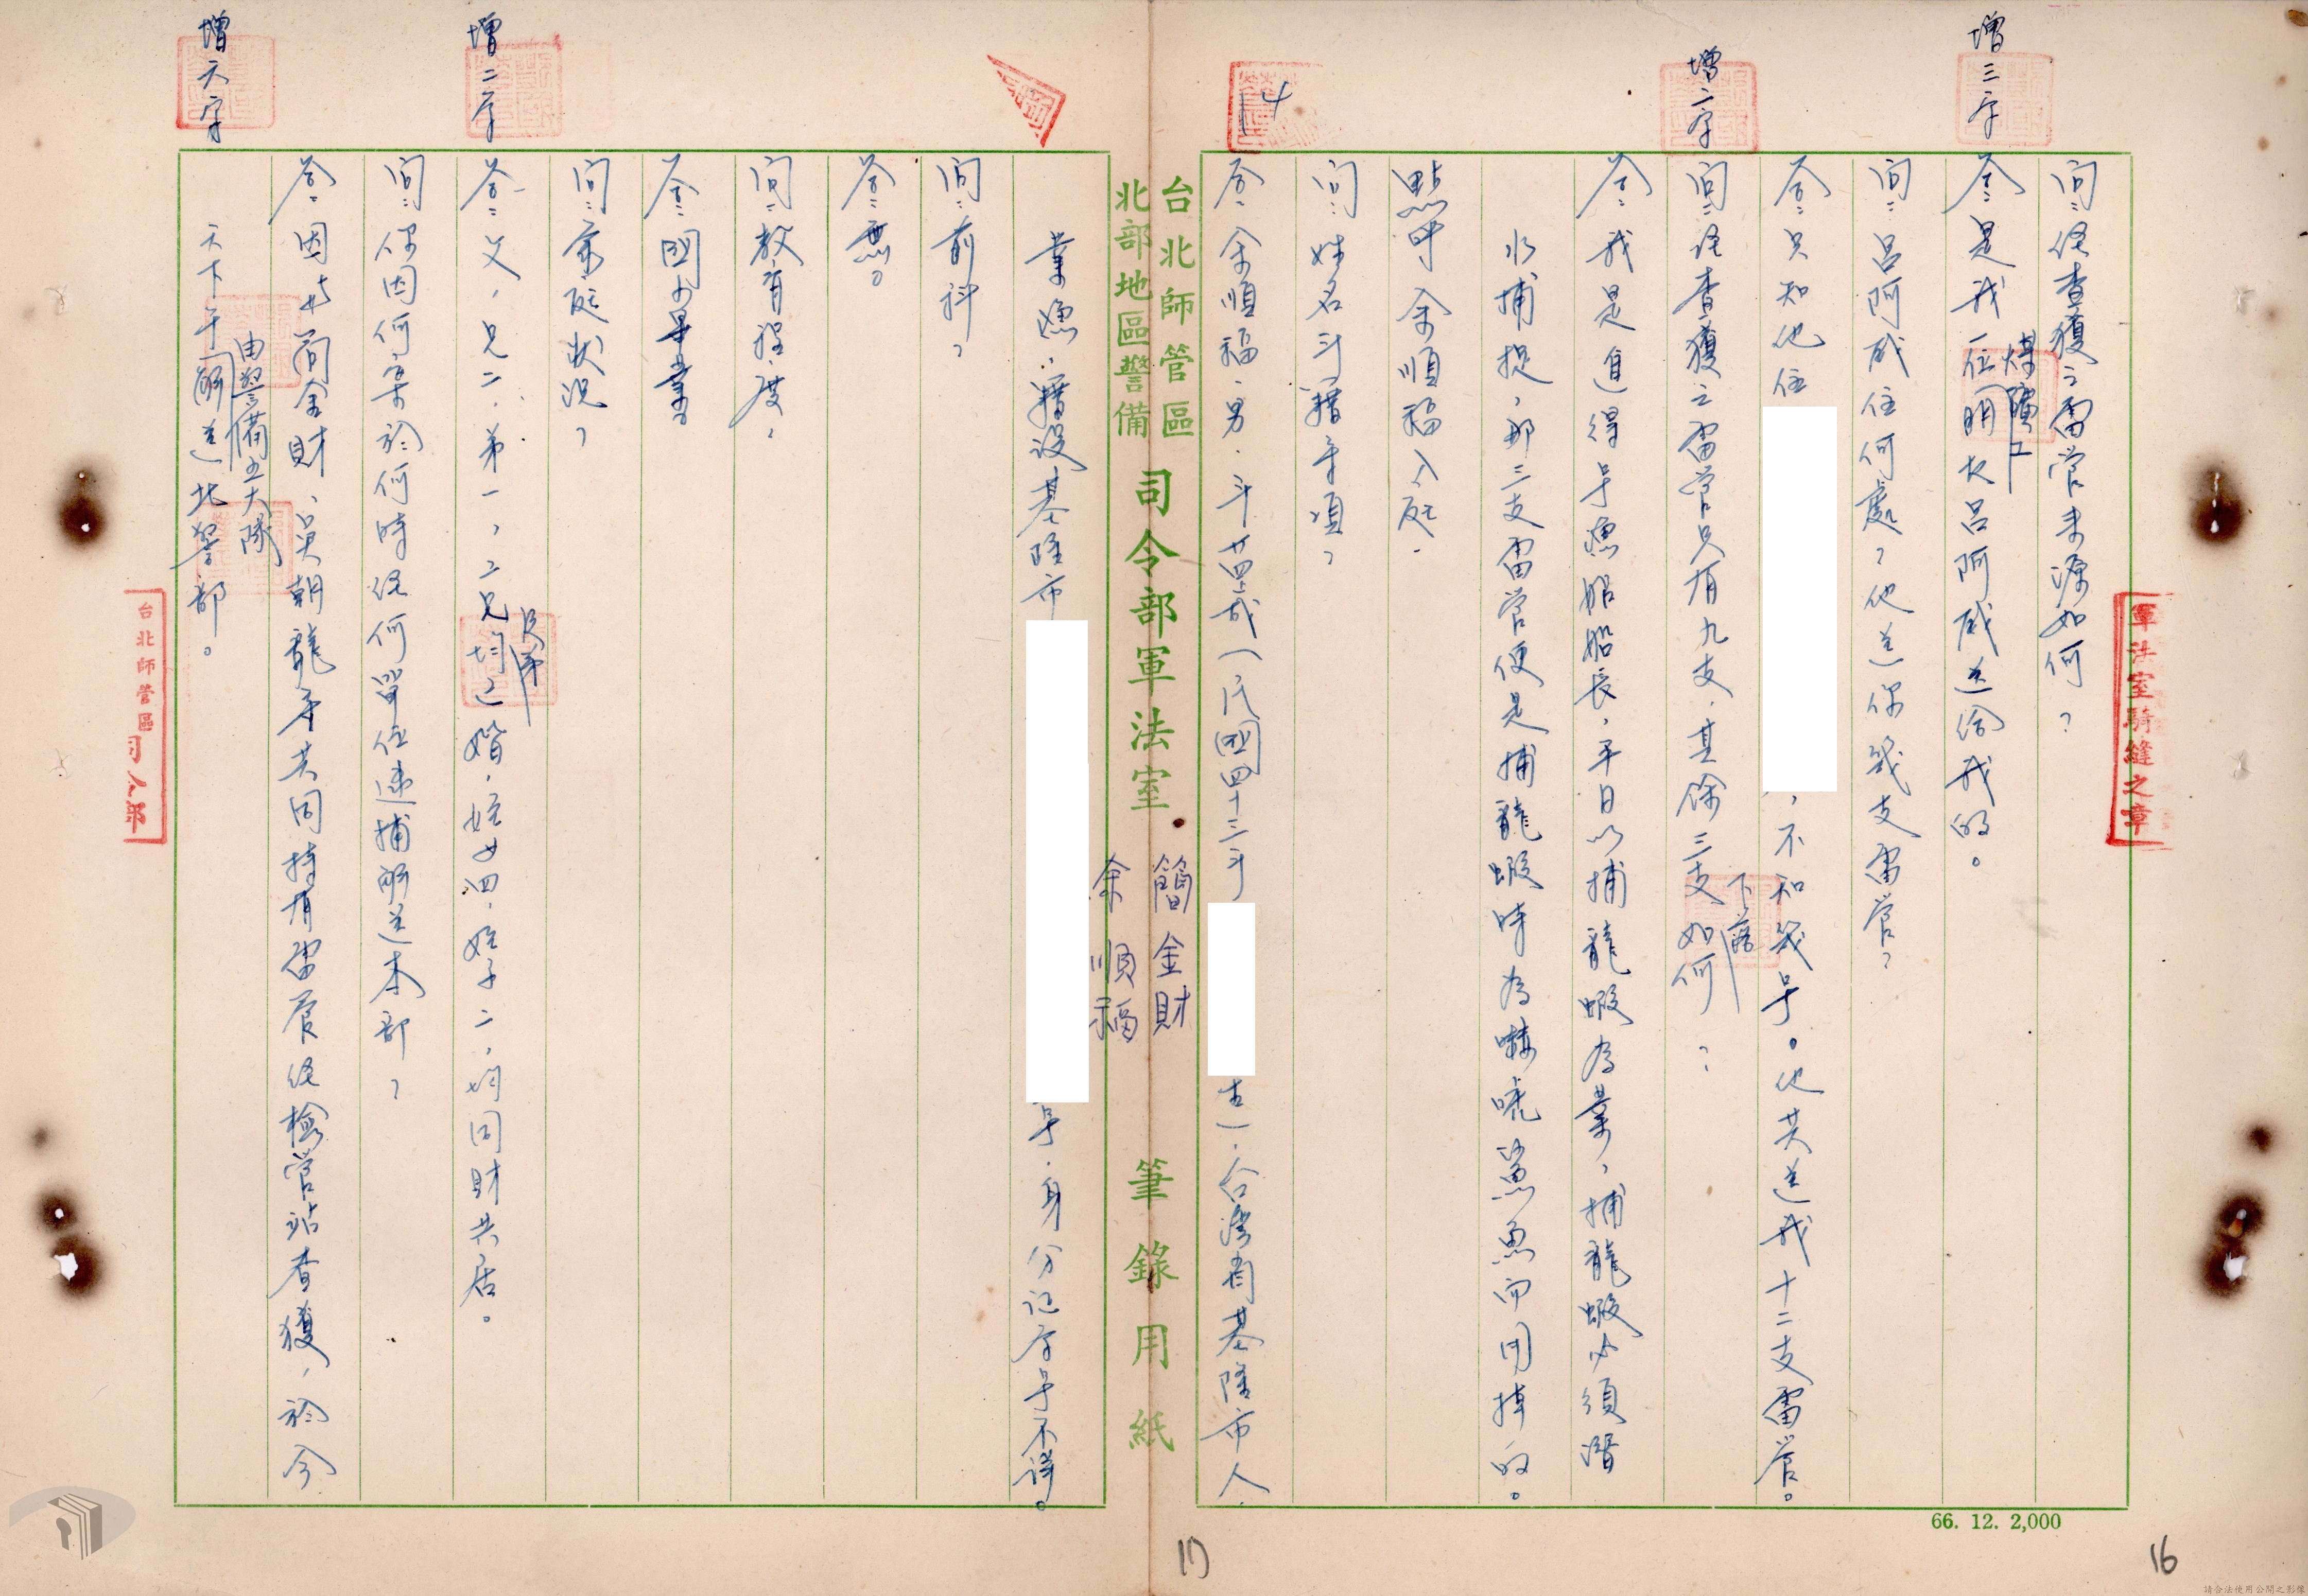 增三字
增二字
14
增二字
增六字
問：經查獲之雷管來源如何？
答：是我一位煤礦工朋友呂阿成送給我的。
問：呂阿成住何處？他送你幾支雷管？
答：只知他住
，不知幾号。他共送我十二支雷管。
問：經查獲之雷管只有九支，其餘三支下落如何？
答：我是進得号漁船船長，平日以捕龍蝦為業，捕龍蝦必須潛
水捕捉，那三支雷管便是捕龍蝦時為嚇唬鯊魚而用掉的。
點呼余順福入庭．
問：姓名年籍等項？
答：余順福，男，年廿四歲（民國四十三年
生），台灣省基隆市人，
台北師管區
北部地區警備
司令部軍法室
簡金財
余順福
筆錄用紙
業漁，籍設基隆市
号，身分証字号不詳。
問：前科？
答：無。
問：教育程度？
答：國小畢業
問：家庭狀況？
答：父，兄二，弟一，二兄及弟均已婚，姪女四，姪子二，均同財共居。
問：你因何案於何時經何單位逮捕解送本部？
答：因與簡金財、吳朝龍等共同持有雷管經檢管站查獲，於今
天下午由警備五大隊解送北警部。
軍法室騎縫之章
台北師管區
司令部
66. 12. 2,000
16
17
請合法使用公開之影像